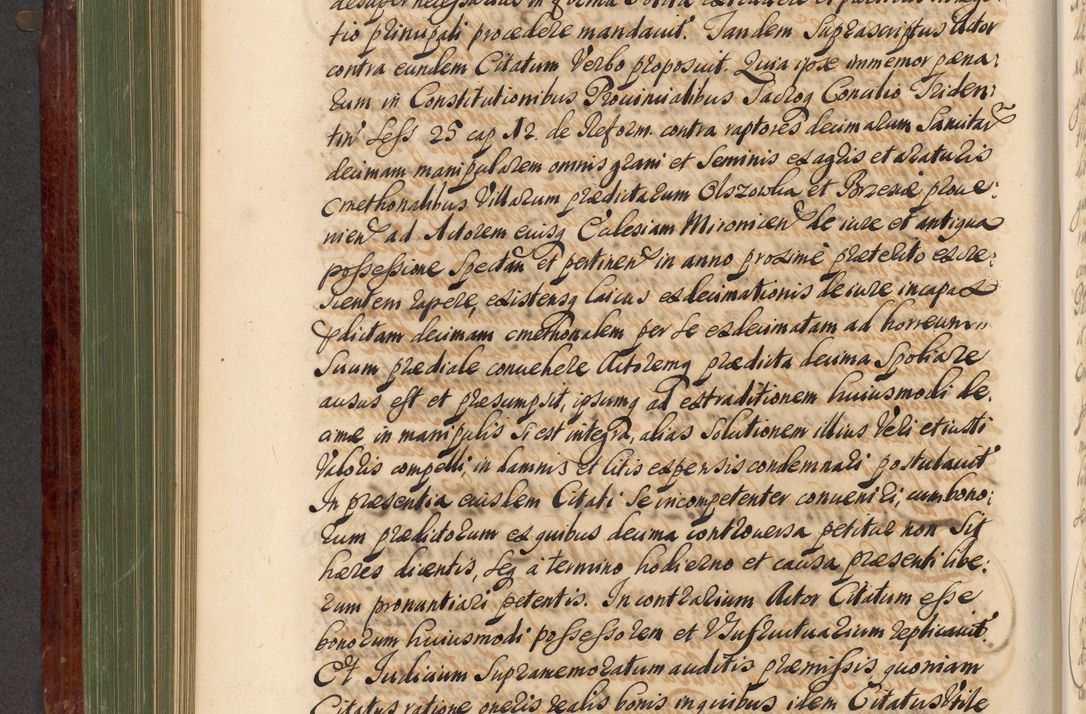 desuper necessarias in forma solita extradere et partibus in nego:
tio principali procedere mandavit. Tandem Suprascriptus Actor
contra eundem Citatum Verbo proposuit. Quia ipse immemor pæna:
rum in Constitutionibus Provincialibus Sacroq Concilio Triden:
tin Sess 25 cap 12. de Reform. contra raptores decimarum Sancitar
decimam manipularem omnis grani et Seminis ex agris et araturis
cmethonalibus Villarum prædictarum Olszowka et Brzezie prove:
nien ad Actorem eiusq Eclesiam Mironicen de iure et antiqua
possessione Spectan et pertinen in anno proxime præterito excre:
scientem rapere, existensq laicus ex decimationis de iure incapax
pdictam decimam cmethonalem per se exdecimatam ad horreum
Suum prædiale convehere Actoremq prædicta decima Spoliare
ausus est et præsumpsit, ipsumq ad extraditionem huiusmodi de:
cimæ in manipulis si est integra, alias Solutionem illius Veri et iusti
Valoris compelli, in damnis et litis expensis condemnari postulavit
In præsentia eiusdem Citati se incompetenter conveniri, cum bono:
rum prædictorum ex quibus decima controversa petitur non Sit
hæres dicentis, seq a termino hodierno et causa præsenti libe:
rum pronuntiari petentis. In contrarium Actor Citatum esse
bonorum huiusmodi possessorem et Usufructuarium replicavit.
Et Iudicium Supramemoratum auditis præmissis, quoniam
Citatus ratione oneris realis bonis in quibus idem Citatus Utile